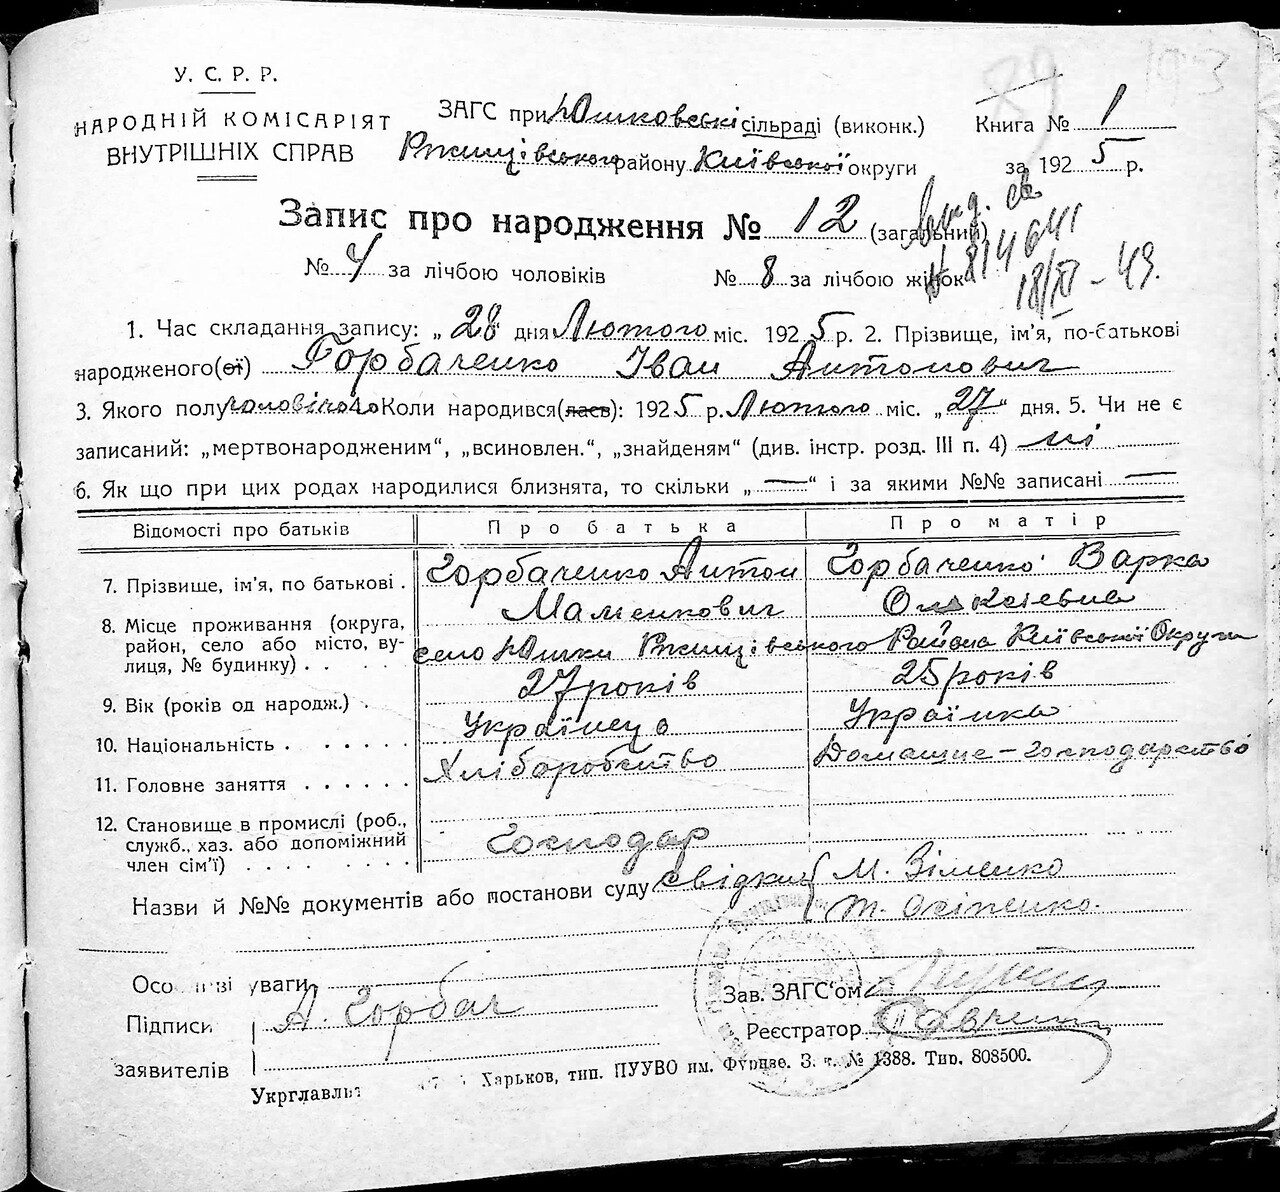 У. С. Р. Р.
НАРОДНІЙ КОМІСАРІЯТ
ВНУТРІШНІХ СПРАВ
ЗАГС при Юшковські сільраді (виконк.)
Ржищівського району Київської округи
Книга № 1
за 1925 р.
Запис про народження № 12 (загальний)
№ 4 за лічбою чоловіків № 8 за лічбою жінок
№ 814641
18/XI - 49.
1. Час складання запису: „28“ дня Лютого міс. 1925 р. 2. Прізвище, ім'я, по-батькові
народженого(ої) Горбаченко Іван Антонович
3. Якого полу чоловічого 4. Коли народився(лась): 1925 р. Лютого міс. „27“ дня. 5. Чи не є
записаний: „мертвонародженим“, „всиновлен.“, „знайденям“ (див. інстр. розд. III п. 4) ні
6. Як що при цих родах народилися близнята, то скільки „—“ і за якими №№ записані —
Відомості про батьків Про батька Про матір
7. Прізвище, ім'я, по батькові . Горбаченко Антон Горбаченко Варка
Олексієвна
8. Місце проживання (округа,
район, село або місто, ву-
лиця, № будинку) . . село Юшки Ржищівського Района Київської Округи
9. Вік (років од народж.) . 27 років 25 років
10. Національність . . . . . . Українець Українка
11. Головне заняття . . . . . . Хліборобство Домашнє-господарство
12. Становище в промислі (роб.,
служб., хаз. або допоміжний
член сім'ї) . . . . . . Господар
Назви й №№ документів або постанови суду свідки М. Зіменко
Т. Осіпенко.
Особливі уваги
Підписи А. Горбач
заявителів
Зав. ЗАГС'ом
Реєстратор
Укрглавліт Харьков, тип. ПУУВО им. Фрунзе. З. т. № 1388. Тир. 808500.